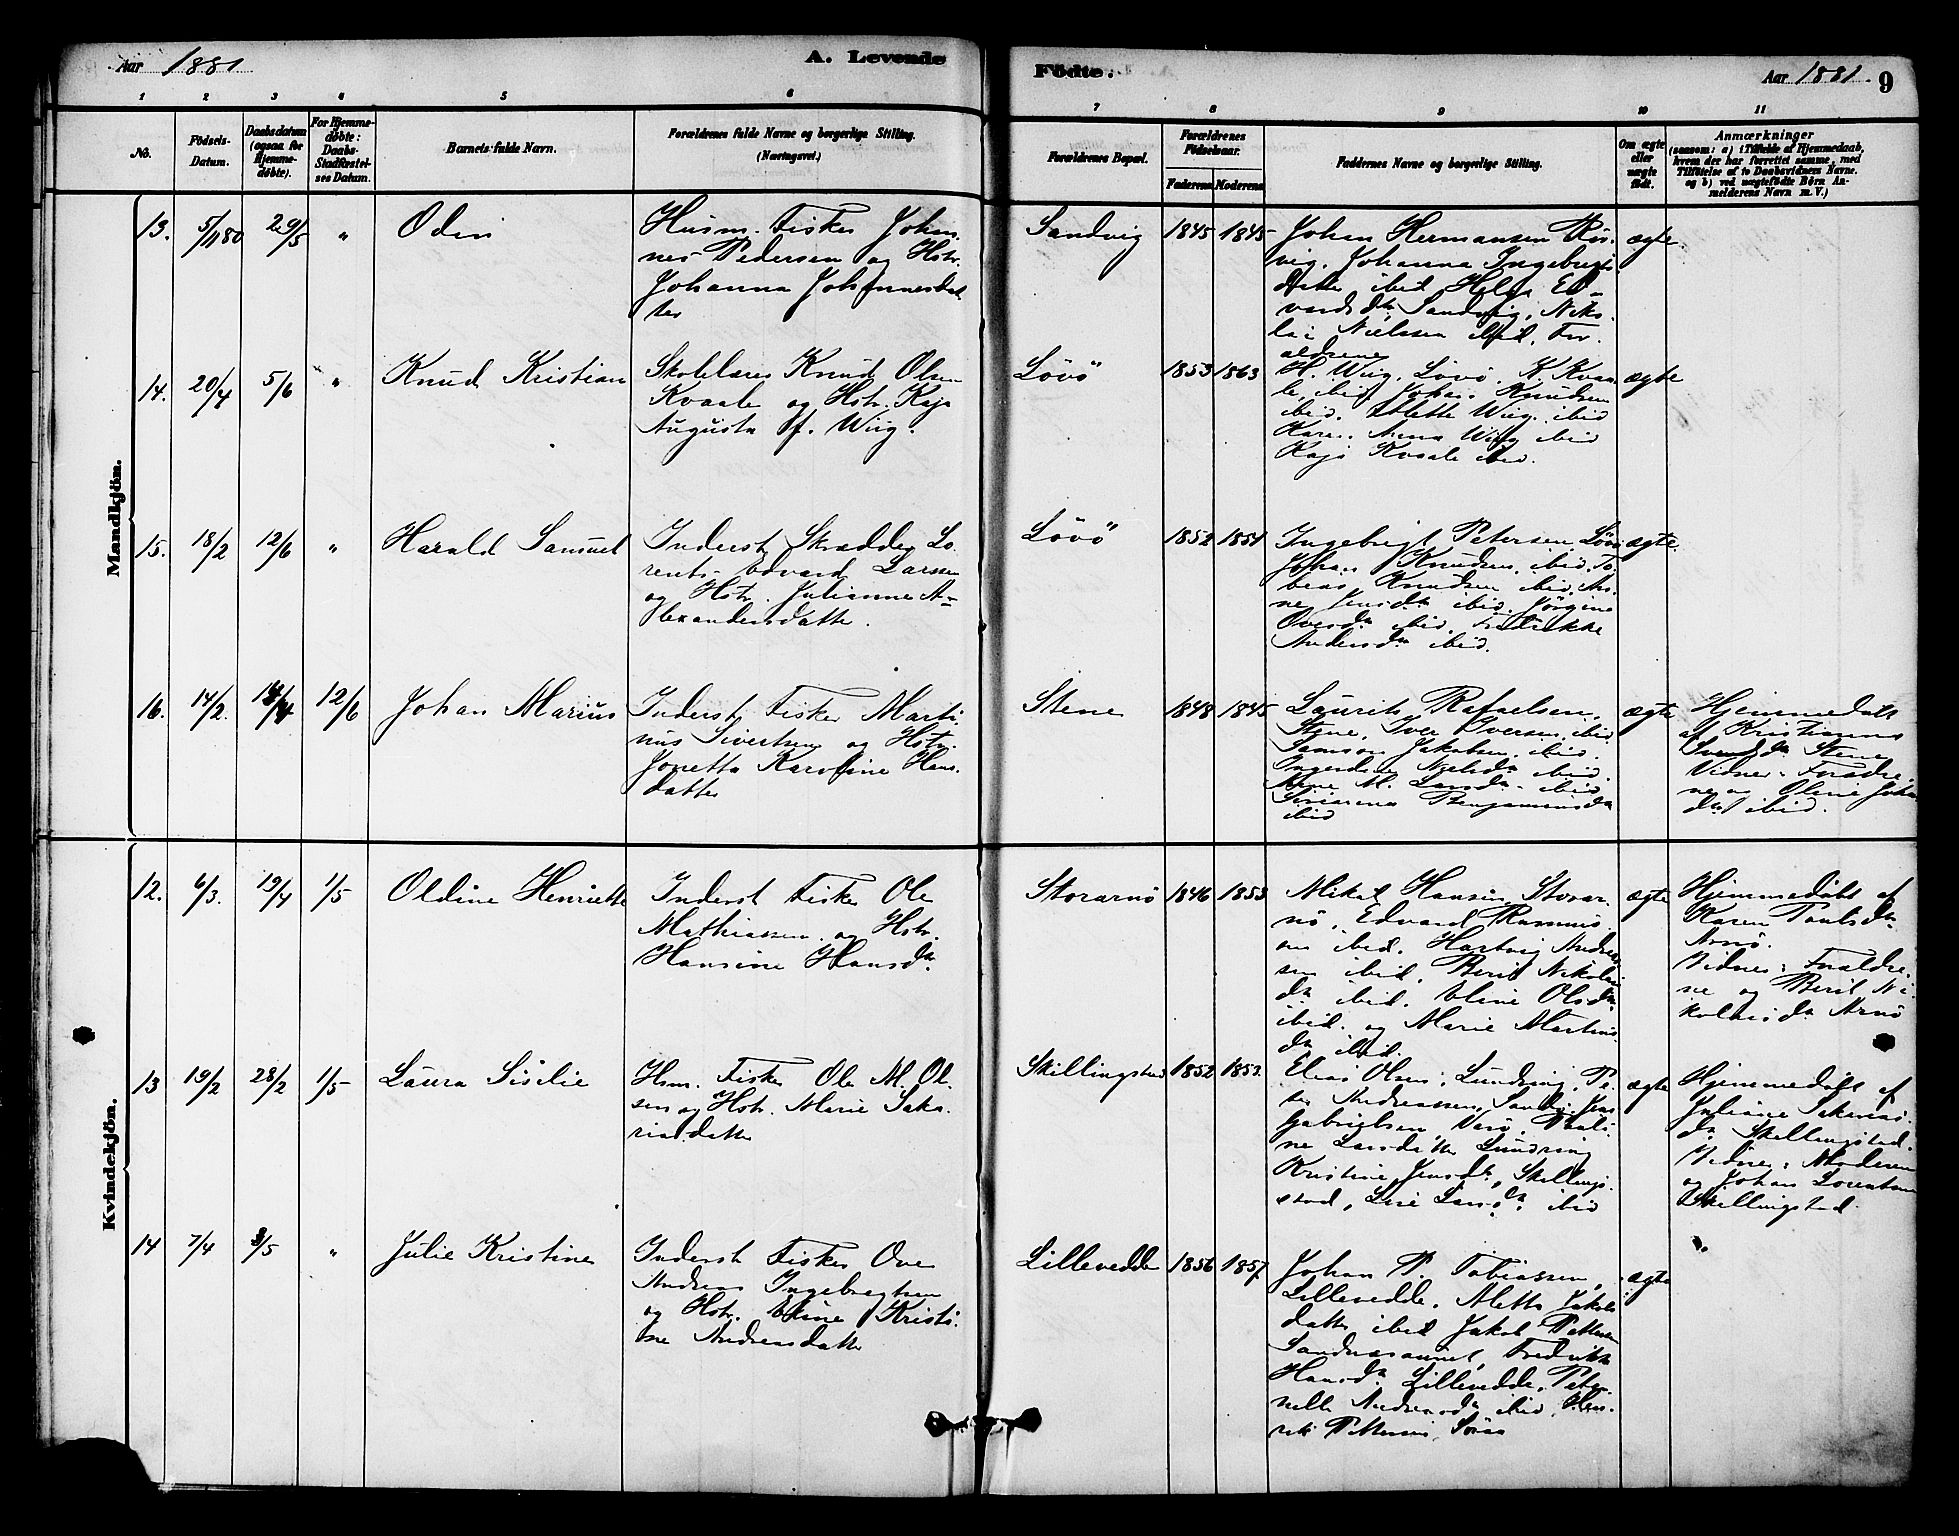 Aar 1881
A. Levende
Födte.
Aar 1881.
9
1 2 3 4 5 6 7 8 9 10 11
No.
Födsels-Datum.
Daabsdatum (ogsaa for Hjemmedöbte).
For Hjemmedöbte: Daabs-Stadfæstelses Datum.
Barnets fulde Navn.
Forældrenes fulde Navne og borgerlige Stilling. (Næringsvei.)
Forældrenes Bopæl.
Forældrenes Födselsaar.
Faderens
Moderens
Faddernes Navne og borgerlige Stilling.
Om ægte eller uægte födt.
Anmærkninger
(saasom: a) i Tilfælde af Hjemmedaab,
hvem der har forrettet samme, med
Tilföielse af to Daabsvidners Navne.
og b) ved uægtefödte Börn Anmelderens Navn m. V.)
Mandkjön.
13. 5/11 80 29/5 " Odin
Husm. Fisker Johan
nes Pedersen og Hstr.
Johanna Johannesdat
ter
Sandvig 1845 1845
Johan Hermansen
vig, Johanna Ingebrigts
datter ibid, Helga Ed-
vardsdtr Sandvig, Niko
lai Nielsen ibid, For
ældrene
ægte.
14. 20/4 5/6 " Knud Kristian
Skolelærer Knud Olsen
Kvaale og Hstr. Kaja
Augusta f. Wiig.
Lövö 1853 1863
H. Wiig, Lövö, K. Kvaa
le, ibid, Johan Knudsen
ibid. Alette Wiig. ibid
Karen Anna Wiig ibid
Kaja Kvaale ibid.
ægte
15. 18/2 12/6 " Harald Samuel
Inderst Skrædder Lo
rents Edvard Larsen
og Hstr. Julianne A-
lexandersdatter.
Lövö 1852 1854
Ingebrigt Petersen Lövö
Johan Knudsen ibid, To
bias Knudsen ibid, An
ne Jensdtr ibid, Jörgine
Ovesdtr ibid, Fredrikke
Andersdtr ibid.
ægte.
16. 14/2. 12/6 Johan Marius
Inderst Fisker Marti
nus Sivertsen og Hstr.
Jonetta Karoline Hans
datter
Stene 1848 1845
Laurits Rafaelsen,
Stene, Iver Iversen, ibid,
Samson Jakobsen, ibid.
Ingerdine Nielsdtr ibid.
Anne M. Larsdtr ibid
Benjaminsdtr
ibid
ægte
Hjemmedöbt
af Kristianna
Svendsdtr Stene
Vidner: Forældre
ne og Oline Johan
dtr ibid.
Kvindekjön.
12. 6/3. 19/4 1/5 Oldine Henriette
Inderst Fisker Ole
Mathiassen og Hstr.
Hansine Hansdtr
Storarnö 1846 1853
Mikal Hansen, Storar
nö, Edvard Rasmus
sen ibid, Hartvig Andrea
sen ibid, Berit Nikolai
dtr ibid. Eline Olsdtr
ibid. og Marie Martins
dtr ibid.
ægte
Hjemmedöbt af
Karen Paulsdtr
Arnö.
Vidner: Forældre
ne og Berit Ni
kolaisdtr Arnö
13 19/2 28/2 1/5 Laura Sisilie
Hsm. Fisker Ole M. Ol
sen og Hstr. Marie Saka
riasdatter
Skillingstad 1852 1852.
Elias Olsen, Lundring, Pe
ter Andreassen, Sandvig, Jens
Gabrielsen Varö, Pauli
ne Larsdatter Lundring
Kristine Jensdtr, Skillings
stad, Lise Larsdtr ibid
ægte
Hjemmedöbt af
Juliane Sakarias
dtr Skillingstad.
Vidner: Moderen
og Johan Lorentsen
Skillingstad.
14 7/4 8/5 " Julie Kristine
Inderst Fisker Ove
Andreas Ingebrigtsen
og Hstr. Eline Kristi
ne Andreasdatter
Lillevedde 1856 1857
Johan P. Tobiassen,
Lillevedde, Mette Jakobs
datter ibid Jakob Pettersen
Fredrikke
Hansdtr Lillevedde, Peter
nelle Andreasdtr ibid, Hen
rik Pettersen,
ægte